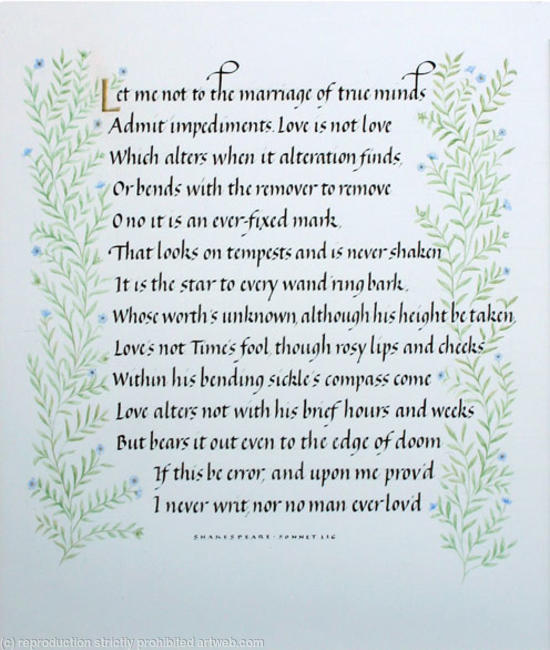 Let me not to the marriage of true minds
Admit impediments. Love is not love
Which alters when it alteration finds,
Or bends with the remover to remove
O no it is an ever-fixed mark,
That looks on tempests and is never shaken
It is the star to every wand'ring bark,
Whose worth's unknown, although his height be taken,
Love's not Time's fool, though rosy lips and cheeks
Within his bending sickle's compass come
Love alters not with his brief hours and weeks
But bears it out even to the edge of doom
If this be error, and upon me prov'd
I never writ, nor no man ever lov'd
SHAKESPEARE · SONNET 116
(c) reproduction strictly prohibited artweb.com